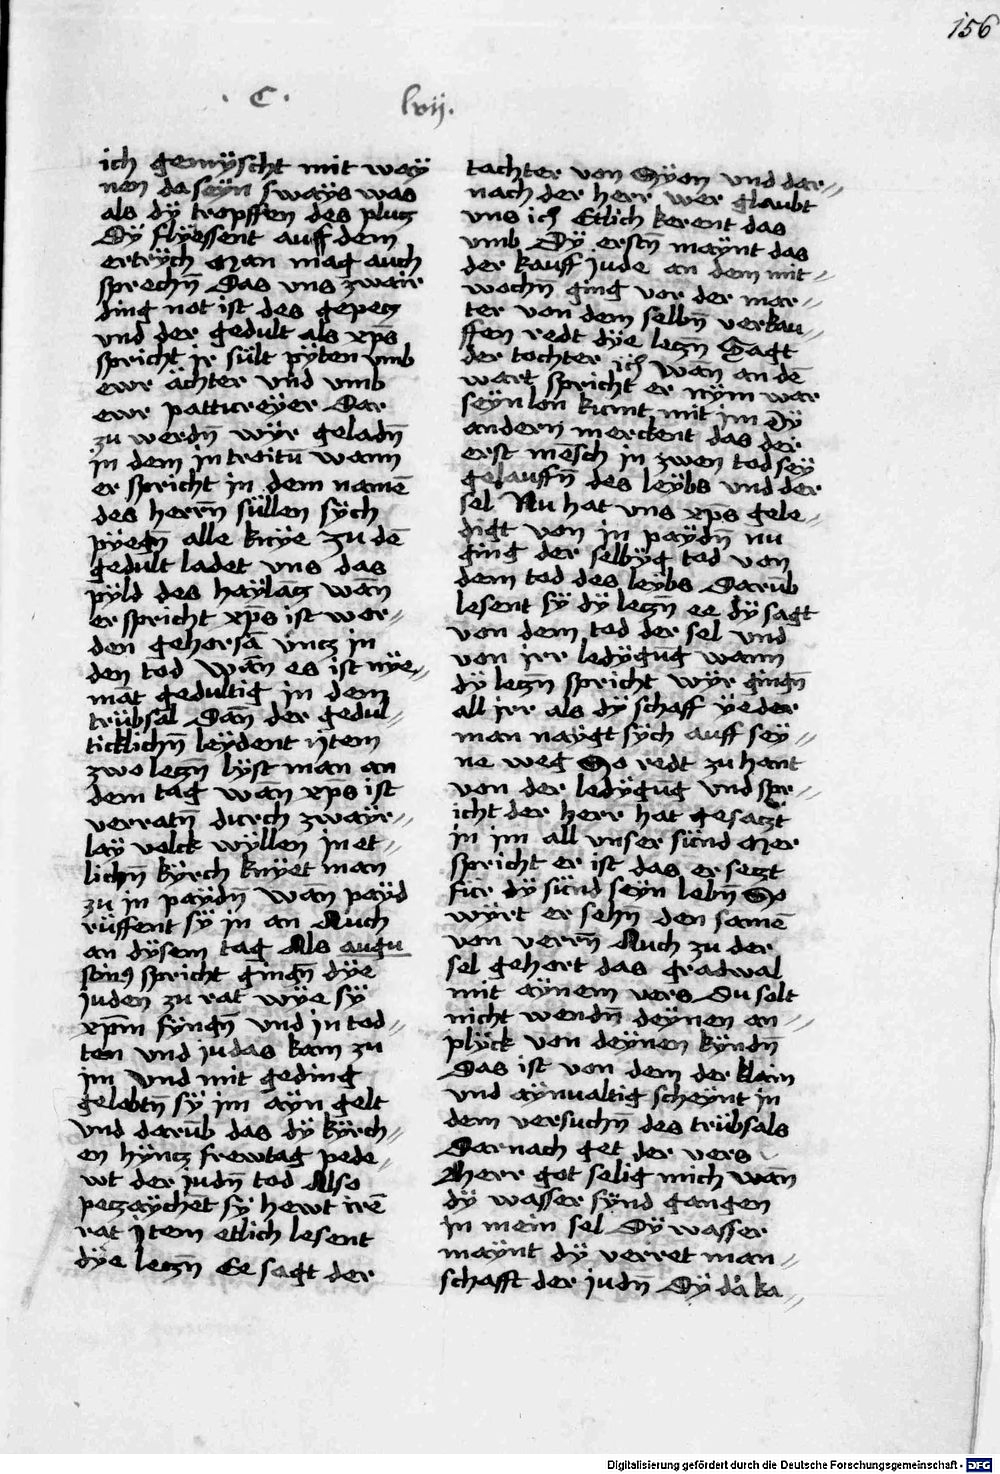 156
· C · lvij.
ich gemÿscht mit waÿ
nen da seÿn swaÿs was
als dÿ tropffen des plucz
Dÿ flÿessent auff dem
ertrÿch Man mag auch
sprechn̄ Das uns zwair
ding not ist des gepecz
und der gedult als xp̄s
spricht jr sült pÿten umb
ewr ächter und umb
ewr pattureÿer Dar
zu werdn̄ wÿr geladn̄
in dem introitū wann
er spricht in dem namē
des herrn̄ süllen sÿch
pÿegn̄ alle knÿe zu dē
gedult ladet uns das
pÿld des haÿlācz wan̄
er spricht xp̄s ist wor〃
den gehorsā üncz in
den tod wan̄ es ist nÿe〃
māt gedultig in dem
trübsal Dan̄ der gedul〃
ticklichn̄ leÿdent ÿtem
zwo leczn̄ lÿst man an
dem tag wan xps ist
verratn̄ durch zwaÿr〃
laÿ volck wÿllen in et〃
lichn̄ kÿrch knÿet man
zu in paÿdn̄ wan paÿd
rüffent sÿ in an Auch
an dÿsem tag Als augu
stinꝰ spricht gingn̄ dÿe
juden zu rat wÿe sÿ
xp̄m fÿngn̄ und in tod〃
ten und judas kam zu
im und mit geding
gelobtn̄ sÿ im aÿn gelt
und darūb das dÿ kÿrch〃
en hÿncz frewtag pede〃
wt der judn̄ tod Also
peczaÿchet sÿ hewt irē
rat jtem etlich lesent
dÿe leczn̄ Ee sagt der
tochter von Sÿon und dar〃
nach der herr wer glaubt
uns ich Etlich kerent das
umb Dÿ erstn̄ maÿnt das
der kauff jude an dem mit〃
wochn̄ ging vor der mar〃
ter von dem selbn̄ verkau〃
ffen redt dÿe leczn̄ Sagt
der tochter ich wan̄ an dē
wart spricht er nÿm war
seÿn lon kumt mit im Dÿ
andern merckent das der
erst mēsch in zwen tod seÿ
gelauffn̄ des leÿbs und der
sel Nu hat uns xp̄s gele〃
digt von in paÿdn̄ nu
ging der selbÿg tod von
dem tod des leÿbs Darūb
lesent sÿ dÿ leczn̄ ee dÿ sagt
von dem tod der sel und
von irr ledÿgūg wann
dÿ leczn̄ spricht wÿr gingn̄
all irr als dÿ schaff ÿeder
man naÿgt sÿch auff seÿ〃
ne weg So redt zu hant
von der ledÿgūg und spr〃
icht der herr hat gesaczt
in im all unser sünd Mer
spricht er ist das er seczt
für dÿ sünd seÿn lebn̄ So
wÿrt er sehn̄ den samē
von verrn̄ Auch zu der
sel gehort das gradwal
mit aÿnem vers Du solt
nicht wendn̄ deÿnen an〃
plÿck von deÿnen kÿndn̄
Das ist von dem der klain
und aÿnvaltig scheÿnt in
dem versuchn̄ des trübsals
Darnach get der vers
Herr got selig mich wan̄
dÿ wasser sÿnd gangen
in mein sel Dÿ wasser
maÿnt dÿ verret man〃
schafft der judn̄ Dÿ da ka〃
Digitalisierung gefördert durch die Deutsche Forschungsgemeinschaft - DFG